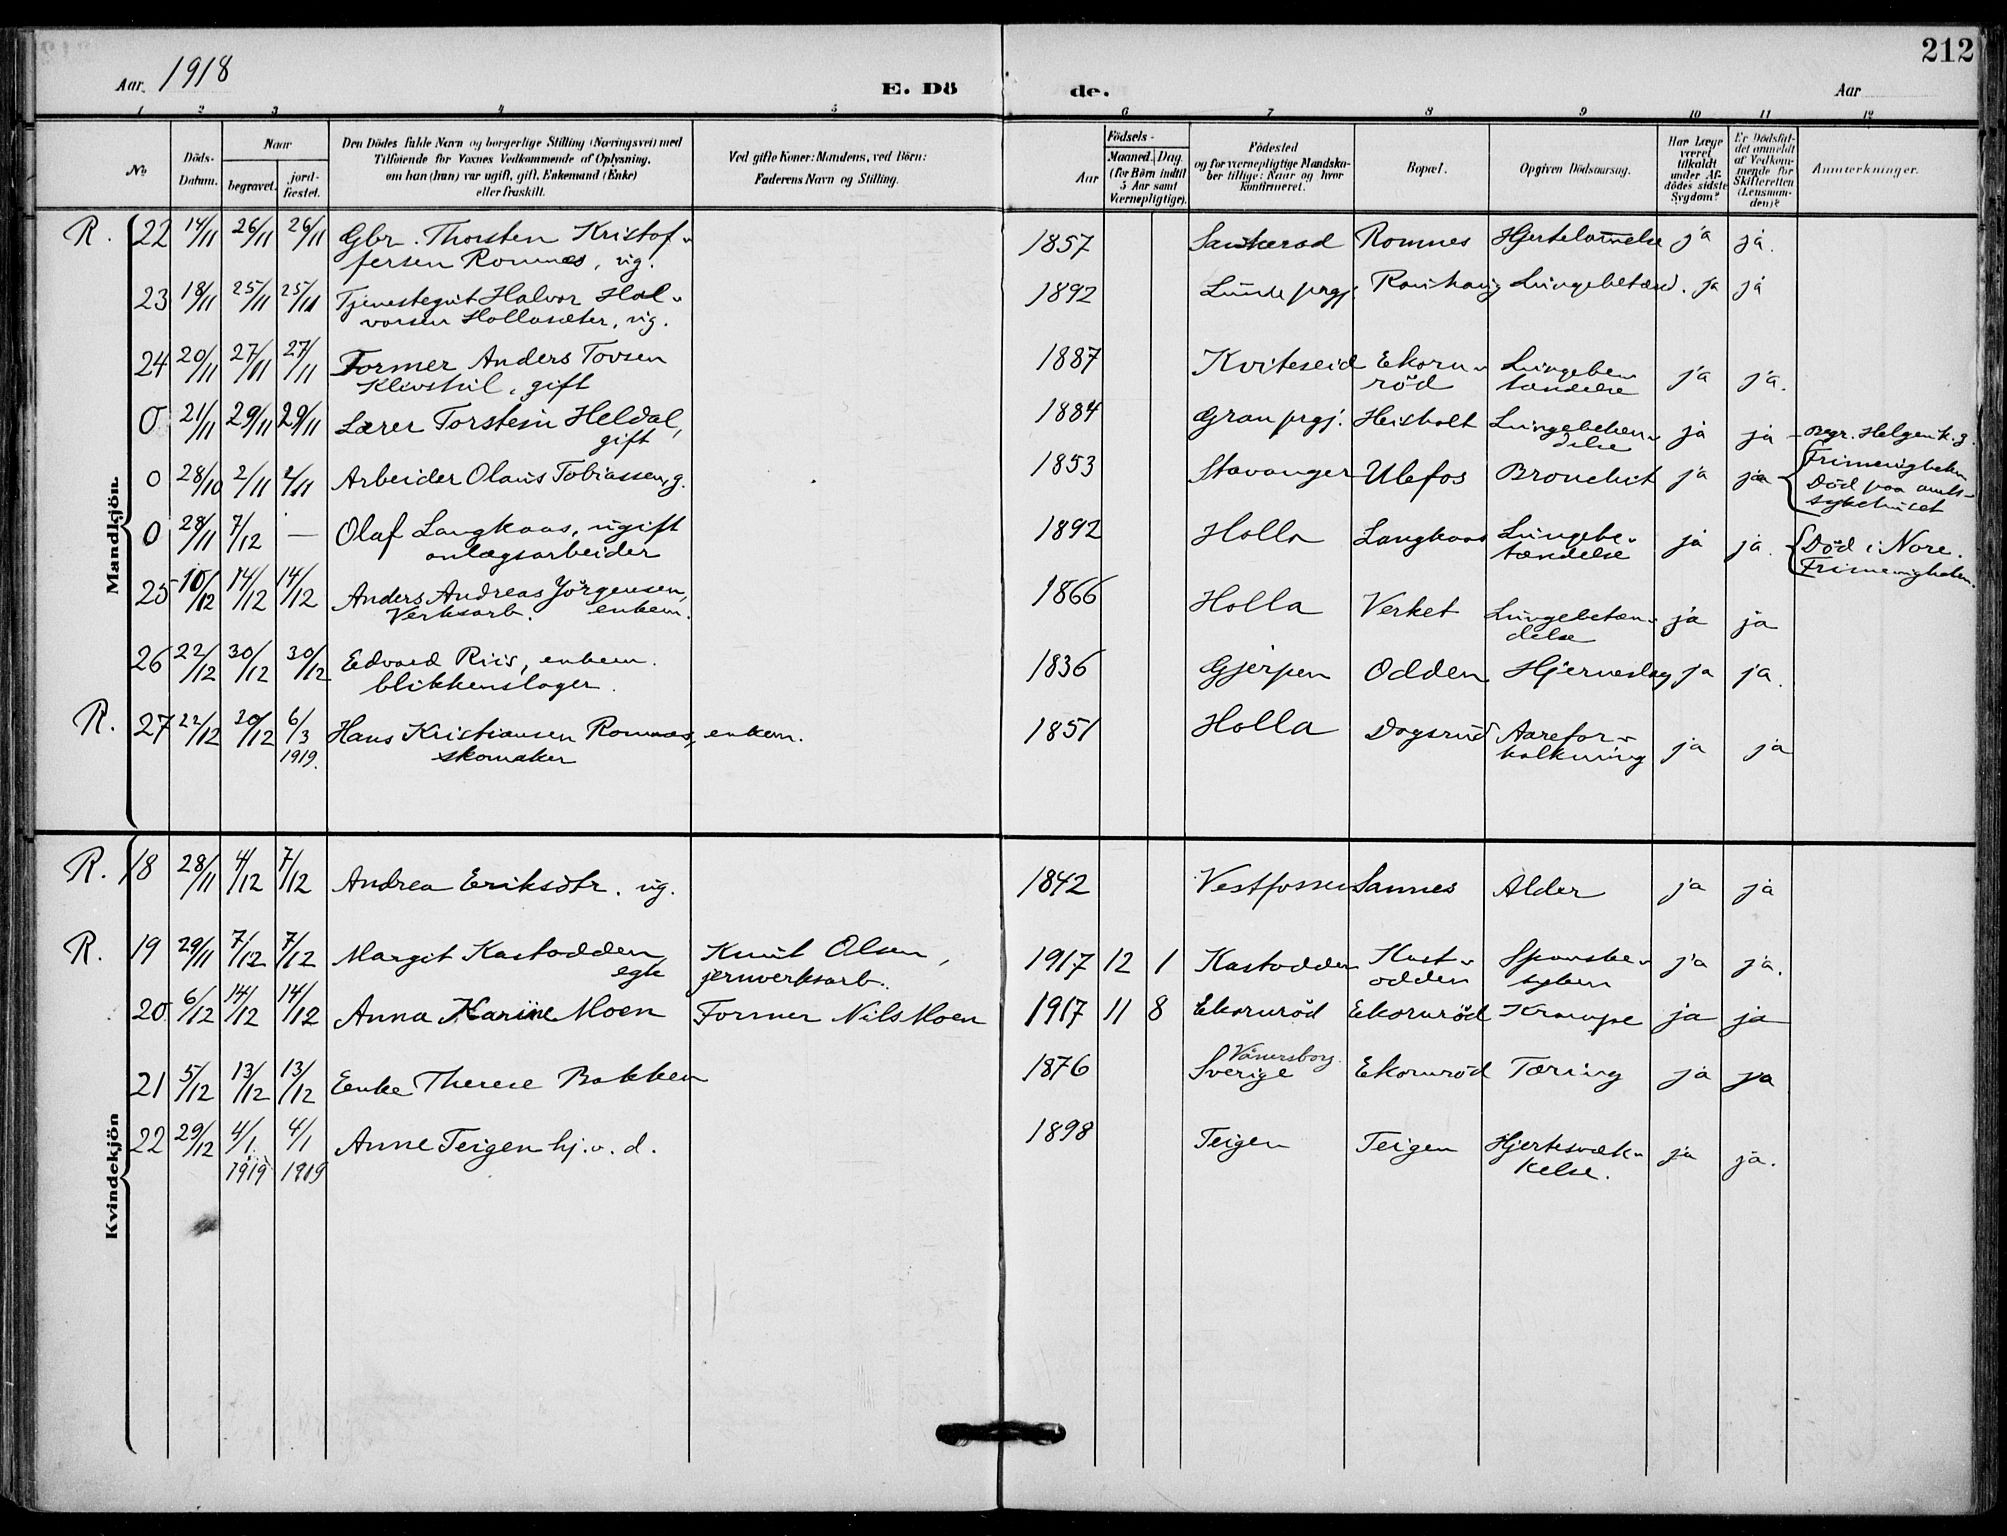 Aar 1918 E. Dö de. Aar 212
1 2 3 4 5 6 7 8 9 10 11 12
No. Döds-Datum. Naar begravet. jord-fæstet. Den Dödes fulde Navn og borgerlige Stilling (Næringsvei) med Tilföiende for Voxnes Vedkommende af Oplysning, om han (hun) var ugift, gift, Enkemand (Enke) eller fraskilt. Ved gifte Koner: Mandens, ved Börn: Faderens Navn og Stilling. Födsels- Aar Maaned. Dag (for Börn indtil 5 Aar samt Værnepligtige). Födested og for værnepligtige Mandska-ber tillige: Naar og hvor Konfirmeret. Bopæl. Opgiven Dödsaarsag. Har Læge været tilkaldt under Af-dödes sidste Sygdom? Er Dödsfal-det anmeldt af Vedkom-mende for Skifteretten (Lensman-den)? Anmærkninger.
Mandkjön.
R. 22 14/11 26/11 26/11 Gbr. Thorsten Kristof- 1857 Sauherad Romnes Hjertelammelse ja ja.
fersen Romnes, ug.
23 18/11 25/11 25/11 Tjenestegut Halvor Hal- 1892 Lunde prgj. Lungebetænd. ja ja
vorsen Hollasæter, ug.
24 20/11 27/11 27/11 Former Anders Tovsen 1887 Kviteseid Ekorn- Lungebe-
Klivstul, gift röd tændelse ja ja.
0 21/11 29/11 29/11 Lærer Torstein Heldal, 1884 Gran prgj. Heisholt Lungebeten- ja ja begr. Helgen k. g.
gift delse
0 28/10 2/11 2/11 Arbeider Olaus Tobiassen, g. 1853 Stavanger Ulefos Bronchit ja ja Frimenigheten
Död paa amts-
sykehuset
0 28/11 7/12 — Olaf Langkaas, ugift 1892 Holla Langkaas Lungebe- ja ja. Död i Nore.
anlægsarbeider tændelse Frimenigheten.
25 10/12 14/12 14/12 Anders Andreas Jörgensen, 1866 Holla Verket Lungebetæn- ja ja
Verksarb. enkem. delse
26 22/12 30/12 30/12 Edvard Riis, enkem. 1836 Gjerpen Odden Hjerneslag ja ja.
blikkenslager.
R. 27 22/12 30/12 6/3 Hans Kristiansen Romnes, enkem. 1851 Holla Dagsrud Aarefor- ja ja
1919. skomaker kalkning
Kvindekjön
R. 18 28/11 4/12 7/12 Andrea Eriksdtr. ug. 1842 Vestfossen Sannes Alder ja ja
R. 19 29/11 7/12 7/12 Margit Kastodden Knut Olsen, 1917 12 1 Kastodden Kast- Spanske- ja ja.
egte jernverksarb. odden syken
20 6/12 14/12 14/12 Anna Karine Moen Former Nils Moen 1917 11 8 Ekornröd Ekornröd Krampe ja ja
21 5/12 13/12 13/12 Enke Therese Bakken 1876 Vänersborg Sverige Ekornröd Tæring ja ja
22 29/12 4/1 4/1 Anne Teigen hj. v. d. 1898 Teigen Teigen Hjertesvæk- ja ja.
1919 1919 kelse.